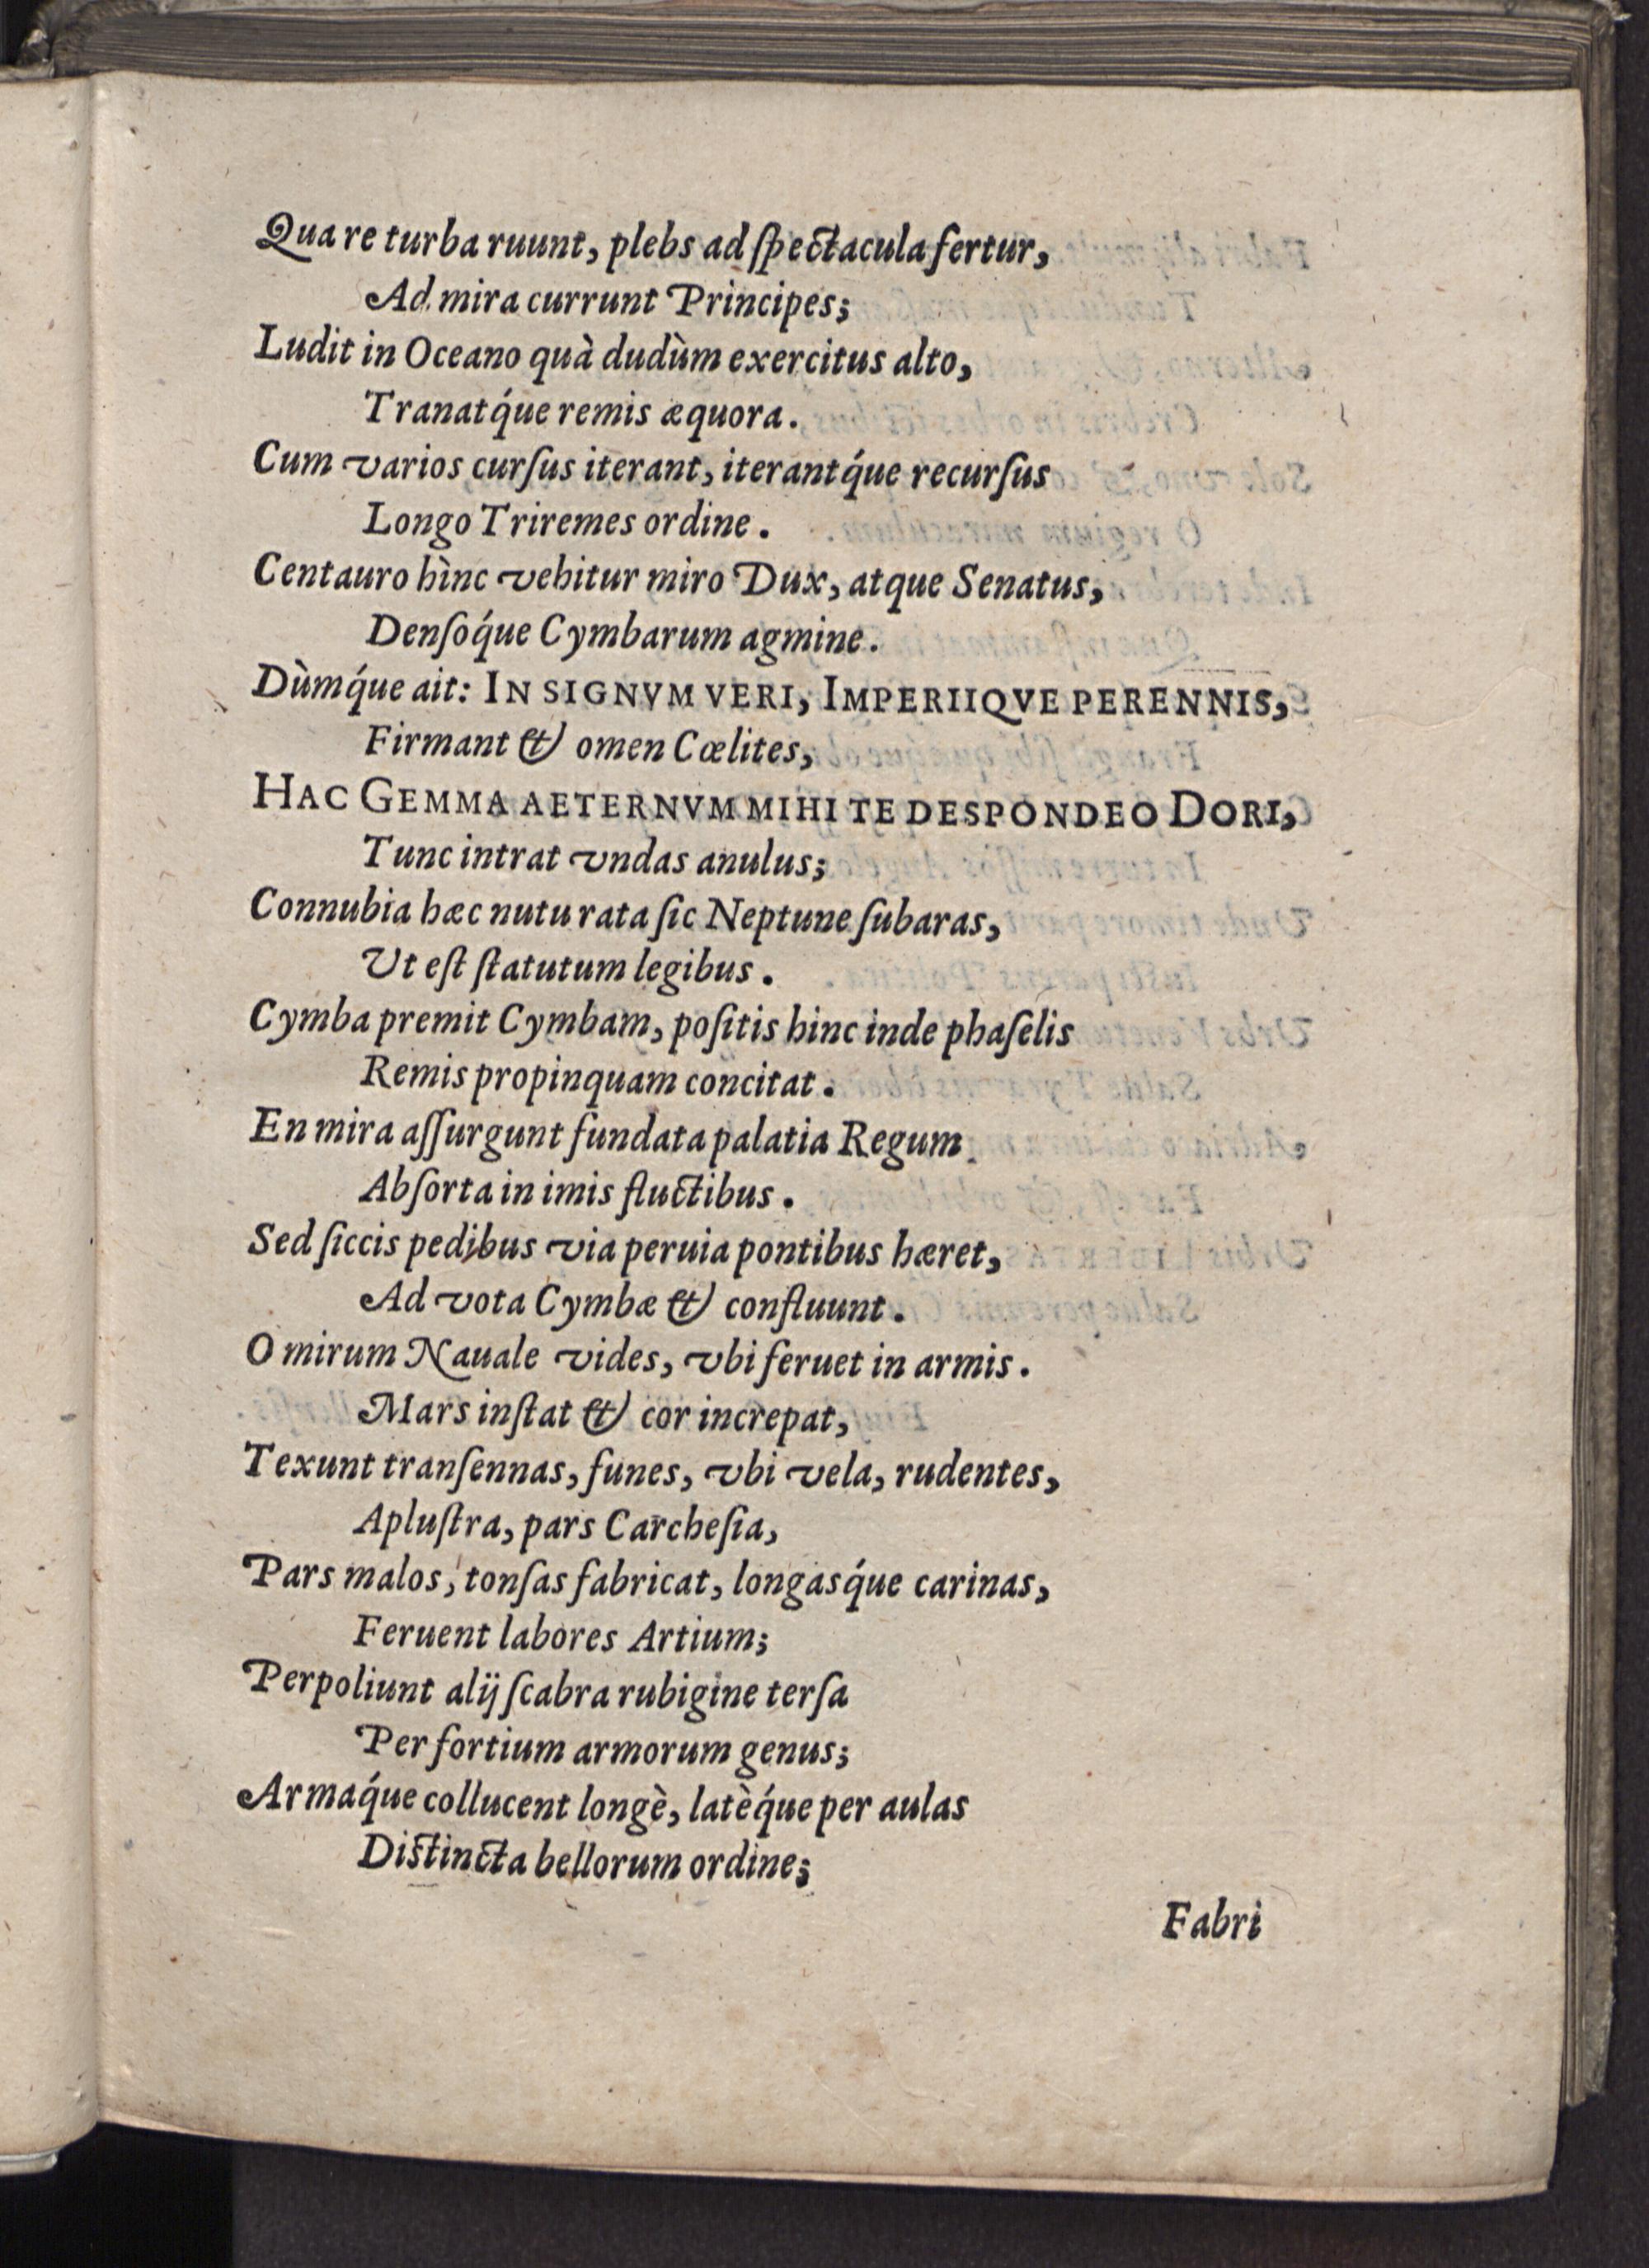 Qua re turba ruunt, plebs ad ſpectacula fertur,
Ad mira currunt Principes;
Ludit in Oceano quà dudùm exercitus alto,
Tranatq́ue remis æquora.
Cum varios curſus iterant, iterantq́ue recurſus
Longo Triremes ordine.
Centauro hìnc vehitur miro Dux, atque Senatus,
Denſoq́ue Cymbarum agmine.
Dùmq́ue ait: IN SIGNVM VERI, IMPERIIQVE PERENNIS,
Firmant & omen Cœlites,
HAC GEMMA AETERNVM MIHI TE DESPONDEO DORI,
Tunc intrat vndas anulus;
Connubia hæc nutu rata ſic Neptune ſubaras,
Ut eſt ſtatutum legibus.
Cymba premit Cymbam, poſitis hinc inde phaſelis
Remis propinquam concitat.
En mira aſſurgunt fundata palatia Regum
Abſorta in imis fluctibus.
Sed ſiccis pedibus via peruia pontibus hæret,
Ad vota Cymbæ & confluunt.
O mirum Nauale vides, vbi feruet in armis.
Mars inſtat & cor increpat,
Texunt tranſennas, funes, vbi vela, rudentes,
Apluſtra, pars Carcheſia,
Pars malos, tonſas fabricat, longasq́ue carinas,
Feruent labores Artium;
Perpoliunt alij ſcabra rubigine terſa
Per fortium armorum genus;
Armaq́ue collucent longè, latèq́ue per aulas
Distincta bellorum ordine;
Fabri